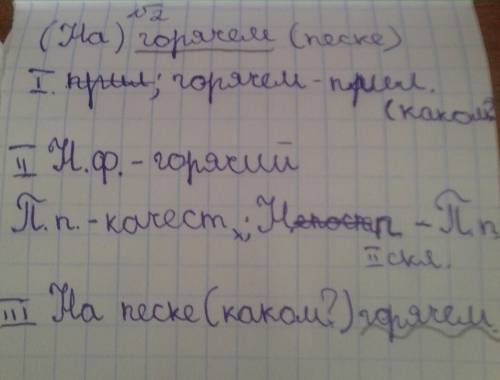 √2
(На) горячем (песке)
I. прил; горячем - прил.
(каком?
II Н.ф. - горячий
П.п. - качест.; Н - П.п
II скл.
III На песке (каком?) горячем.